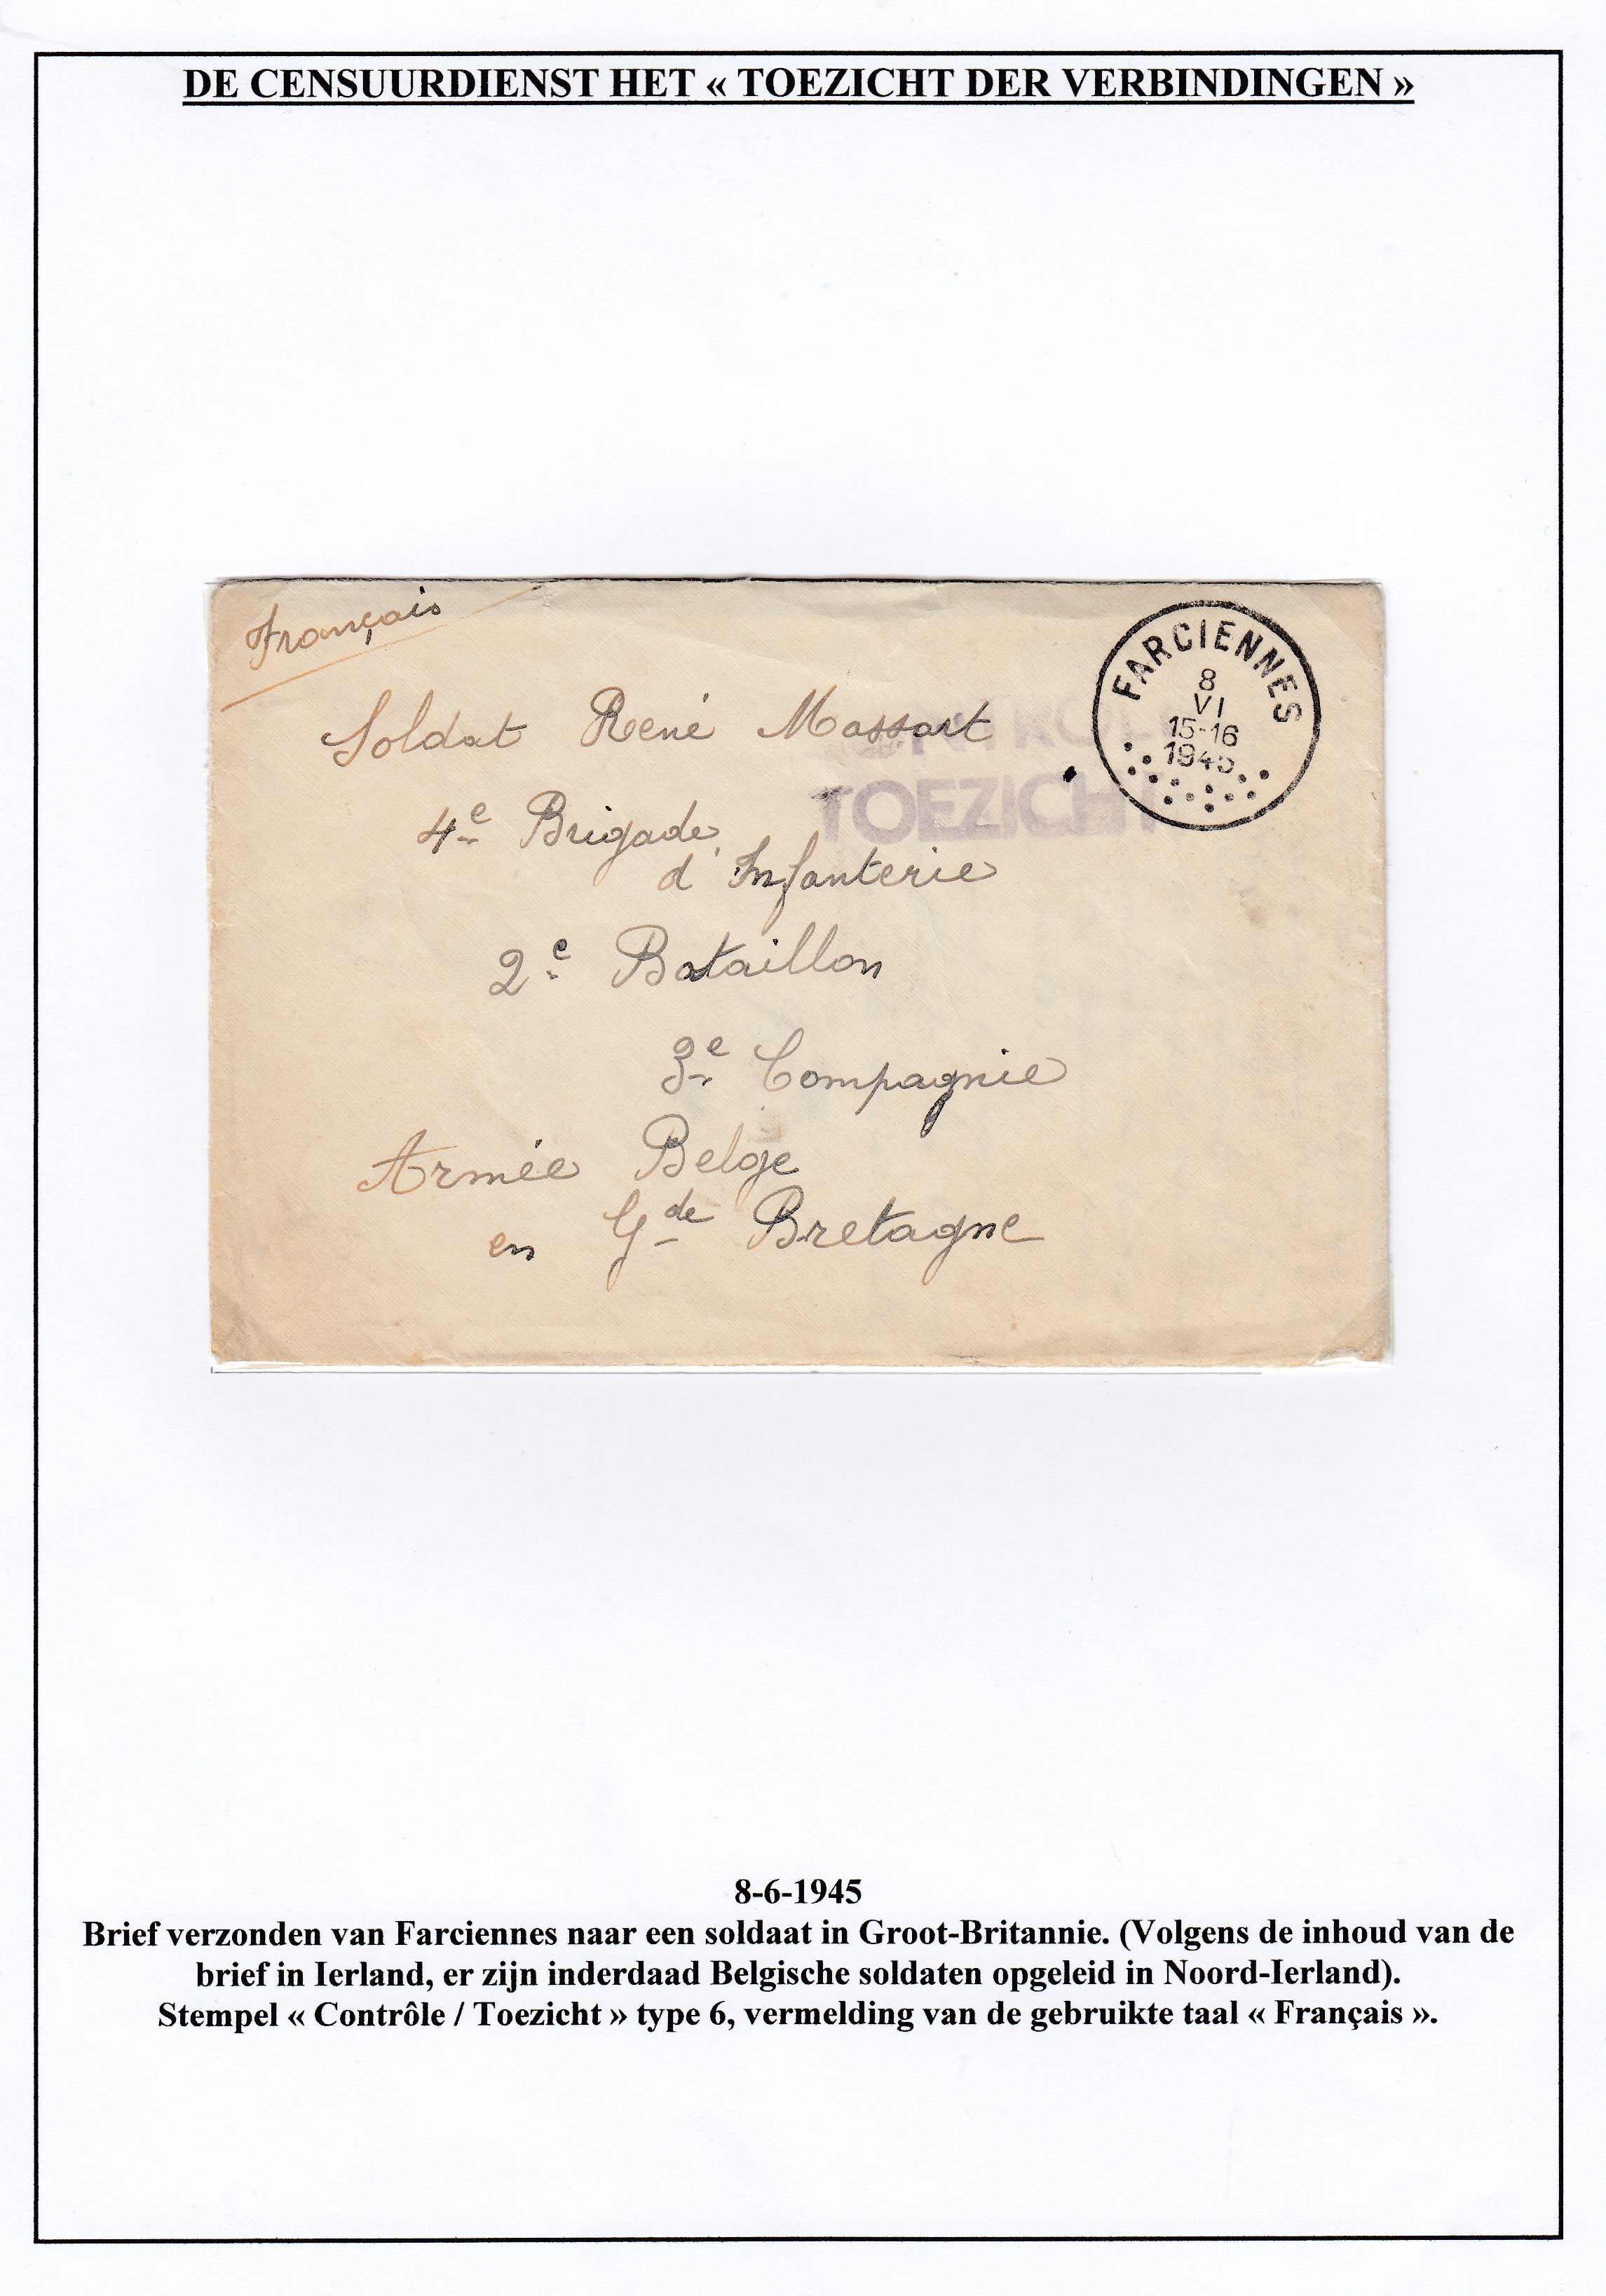 DE CENSUURDIENST HET « TOEZICHT DER VERBINDINGEN »
Français
FARCIENNES
8
VI
15-16
1945
Soldat René Massart
CONTROLE
TOEZICHT
4e Brigade
d'Infanterie
2e Bataillon
3e Compagnie
Armée Belge
en Gde Bretagne
8-6-1945
Brief verzonden van Farciennes naar een soldaat in Groot-Britannie. (Volgens de inhoud van de
brief in Ierland, er zijn inderdaad Belgische soldaten opgeleid in Noord-Ierland).
Stempel « Contrôle / Toezicht » type 6, vermelding van de gebruikte taal « Français ».